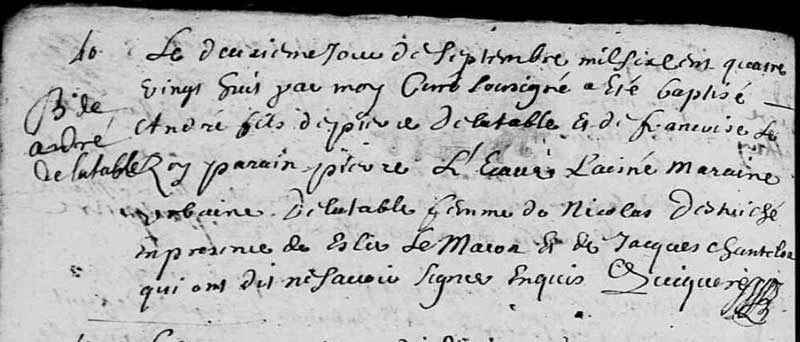 40.
B. de
andré
delatable
Le deuxieme Jour de Septembre mil six cent quatre
vingt huit par moy Curé Soussigné a eté baptisé
André fils de pierre Delatable et de francoise Le
Roy parain pierre L'Ecuüer Laisné Maraine
urbaine Delatable femme de Nicolas
En presence de Le Macon Et de Jacques Chantelou
qui ont dit ne savoir signer Enquis